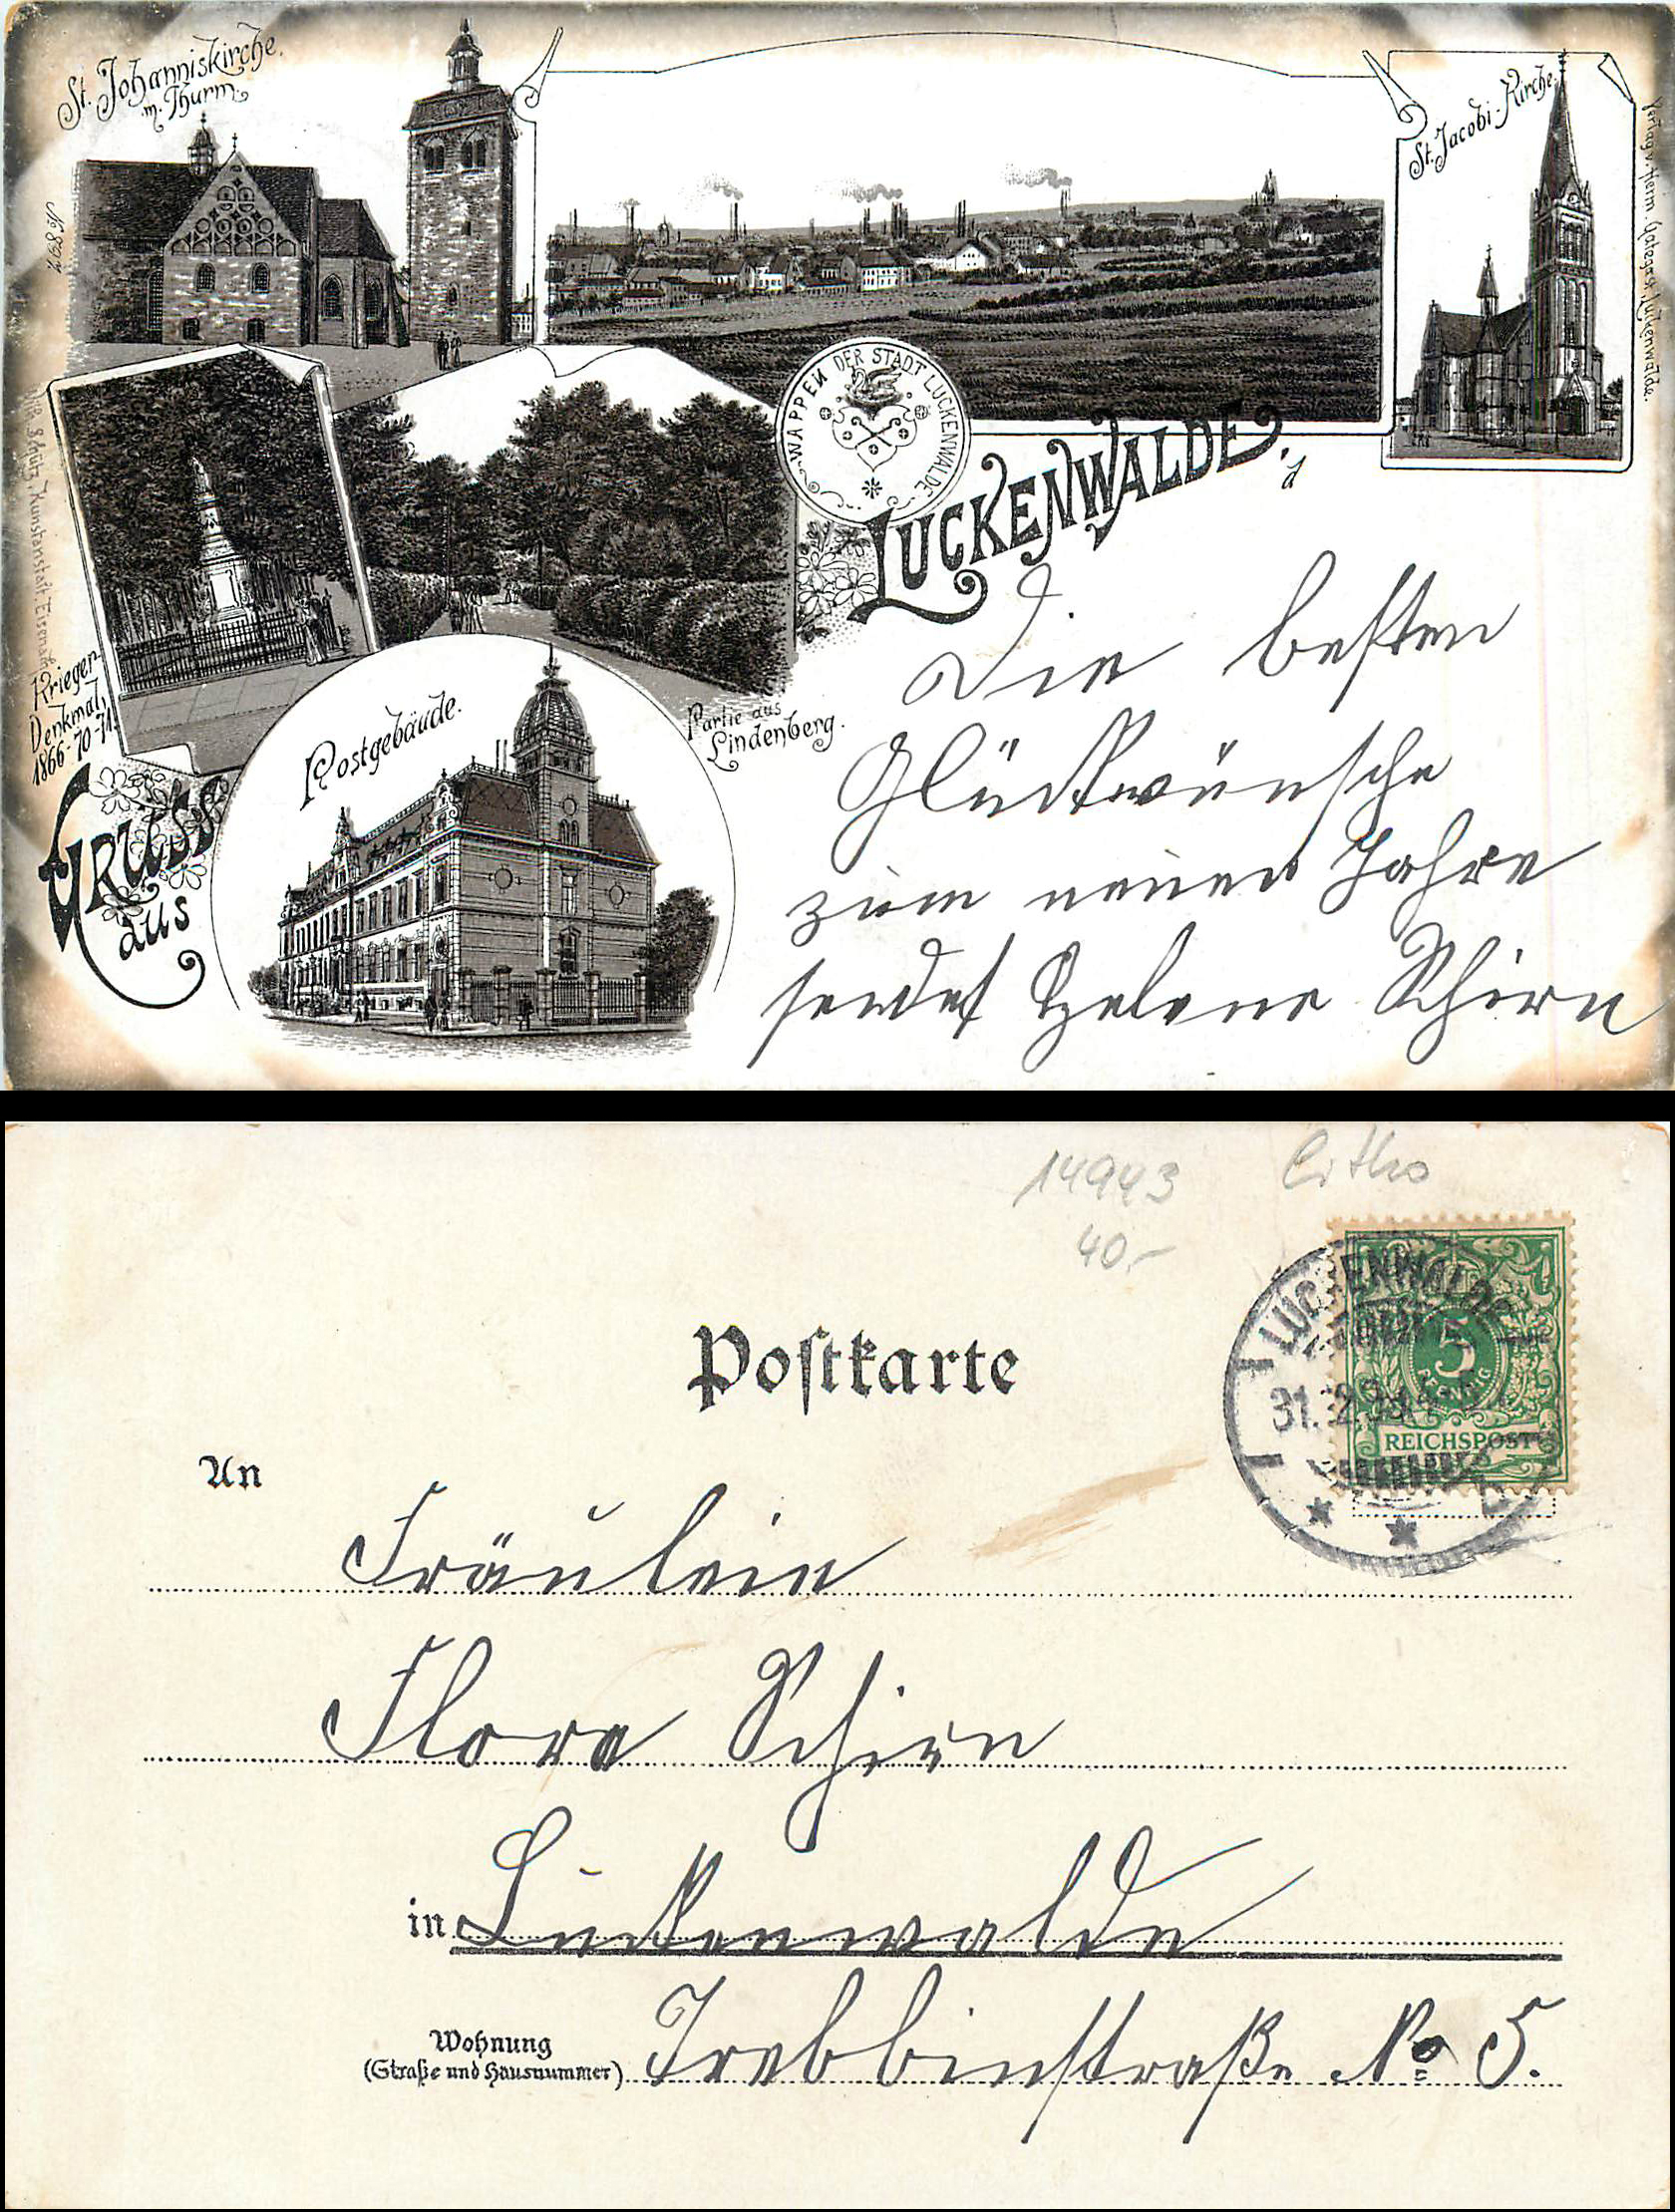 St. Johanniskirche.
m. Thurm
St. Jacobi-Kirche.
Verlag v. Herm.
Luckenwalde.
WAPPEN DER STADT LUCKENWALDE
Krieger-
Denkmal,
1866-70-71.
Kunstanstalt, Eisenach
Partie aus
Lindenberg.
Postgebäude.
Gruss
aus
LUCKENWALDE.
d
Die besten
Glückwünsche
zum neuen Jahre
sendet Helene Schirn
14943 Litho
40,-
Postkarte
LUCKENWALDE
31.12.98.
5
PFENNIG
REICHSPOST
An
Fräulein
Flora Schirn
in Luckenwalde
Wohnung
(Straße und Hausnummer)
Trebbinstraße No 5.